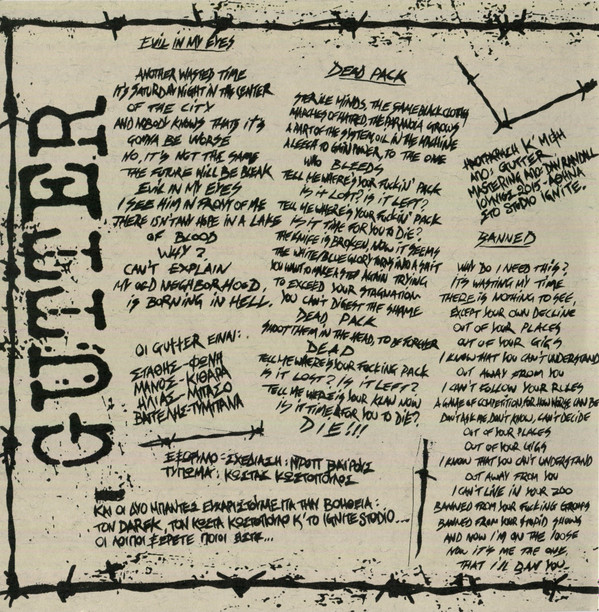 GUTTER
EVIL IN MY EYES
ANOTHER WASTED TIME
IT'S SATURDAY NIGHT IN THE CENTER
OF THE CITY
AND NOBODY KNOWS THATS IT'S
GONNA BE WORSE
NO, IT'S NOT THE SAME
THE FUTURE WILL BE BLEAK
EVIL IN MY EYES
I SEE HIM IN FRONT OF ME
THERE ISN'T ANY HOPE IN A LAKE
OF BLOOD
WHY?
CAN'T EXPLAIN
MY OLD NEIGHBORHOOD,
IS BORNING IN HELL.
ΟΙ GUTTER ΕΙΝΑΙ:
ΣΤΑΘΗΣ-ΦΩΝΗ
ΜΑΝΟΣ-ΚΙΘΑΡΑ
ΗΛΙΑΣ-ΜΠΑΣΟ
ΒΑΓΓΕΛΗΣ-ΤΥΜΠΑΝΑ
ΕΞΩΦΥΛΛΟ-ΣΧΕΔΙΑΣΗ:
ΤΥΠΩΜΑ: ΚΩΣΤΑΣ ΚΩΣΤΟΠΟΥΛΟΣ
ΚΑΙ ΟΙ ΔΥΟ ΜΠΑΝΤΕΣ ΕΥΧΑΡΙΣΤΟΥΜΕ ΓΙΑ ΤΗΝ ΒΟΗΘΕΙΑ:
ΤΟΝ DAREK, ΤΟΝ ΚΩΣΤΑ ΚΩΣΤΟΠΟΥΛΟ Κ' ΤΟ IGNITE STUDIO...
ΟΙ ΛΟΙΠΟΙ ΞΕΡΕΤΕ ΠΟΙΟΙ ΕΙΣΤΕ...
DEAD PACK
STERILE MINDS, THE SAME BLACK CLOTHES
MARCHES OF HATRED, THE PARANOIA GROWS
A PART OF THE SYSTEM, OIL IN THE MACHINE
A LEECH TO GAIN POWER, TO THE ONE
WHO BLEEDS
TELL ME WHERE'S YOUR FUCKIN' PACK
IS IT LOST? IS IT LEFT?
TELL ME WHERE'S YOUR FUCKIN' PACK
IS IT TIME FOR YOU TO DIE?
THE KNIFE IS BROKEN, NOW IT SEEMS
THE WHITE/BLUE GLORY TURNS INTO A SHIT
YOU WANT TO MAKE A STEP AGAIN TRYING
TO EXCEED YOUR STAGNATION
YOU CAN'T DIGEST THE SHAME
DEAD PACK
SHOOT THEM IN THE HEAD, TO BE FOREVER
DEAD
TELL ME WHERE'S YOUR FUCKING PACK
IS IT LOST? IS IT LEFT?
TELL ME WERE IS YOUR KLAN NOW
IS IT TIME FOR YOU TO DIE?
DIE!!!
ΗΧΟΓΡΑΦΗΣΗ Κ' ΜΙΞΗ
ΑΠΟ: GUTTER
MASTERING ΑΠΟ: DAN RANDALL
ΙΟΥΝΙΟΣ 2015-ΑΘΗΝΑ
ΣΤΟ STUDIO IGNITE.
BANNED
WHY DO I NEED THIS?
IT'S WASTING MY TIME
THERE IS NOTHING TO SEE,
EXCEPT YOUR OWN DECLINE
OUT OF YOUR PLACES
OUT OF YOUR GIGS
I KNOW THAT YOU CAN'T UNDERSTAND
OUT AWAY FROM YOU
I CAN'T FOLLOW YOUR RULES
A GAME OF COMPETITION, FOR HOW WORSE CAN BE
DON'T ASK ME, DON'T KNOW, CAN'T DECIDE
OUT OF YOUR PLACES
OUT OF YOUR GIGS
I KNOW THAT YOU CAN'T UNDERSTAND
OUT AWAY FROM YOU
I CAN'T LIVE IN YOUR ZOO
BANNED FROM YOUR FUCKING GROUPS
BANNED FROM YOUR STUPID SHOWS
AND NOW I'M ON THE LOOSE
NOW IT'S ME THE ONE,
THAT I'LL BAN YOU